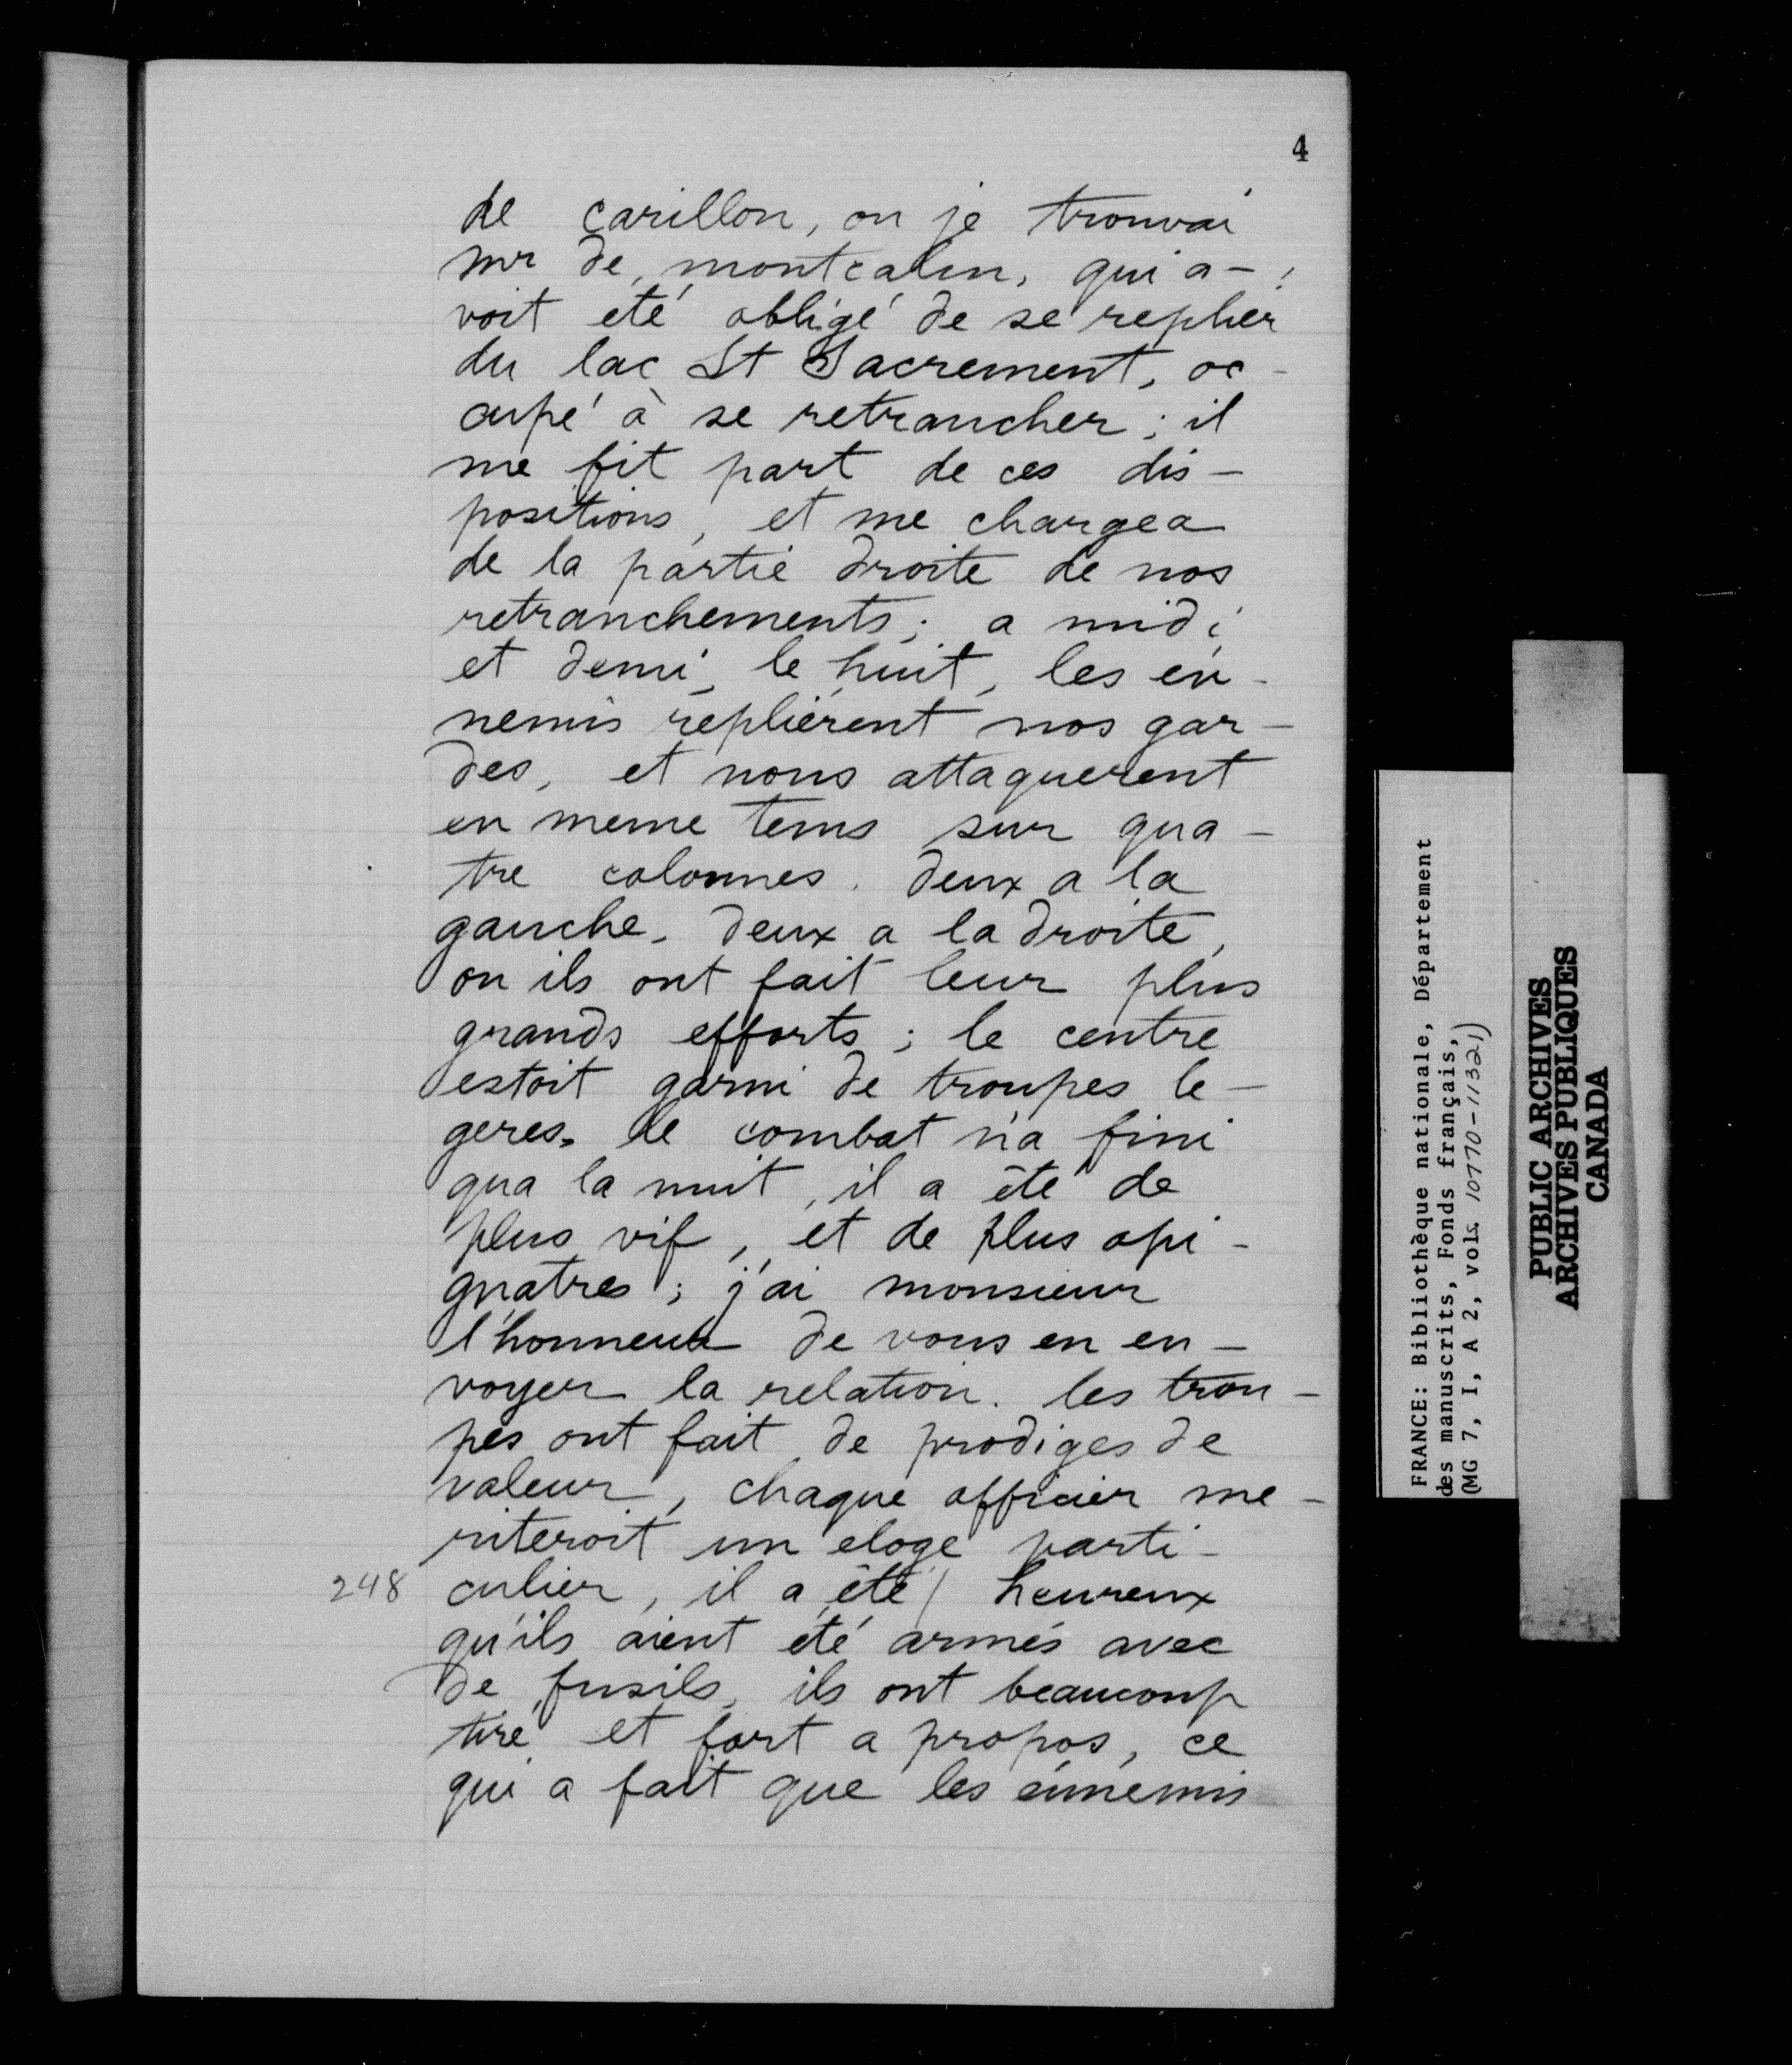 4
de carillon, ou je trouvai
mr de montcalm, qui a-
voit eté obligé de se replier
du lac St Sacrement, oc-
cupé à se retrancher; il
me fit part de ces dis-
positions, et me chargea
de la partie droite de nos
retranchements; a midi
et demi, le huit, les en-
nemis replièrent nos gar-
des, et nous attaquerent
en meme tems sur qua-
tre colonnes. deux a la
gauche. deux a la droite,
ou ils ont fait leur plus
grands efforts; le centre
estoit garni de troupes le-
geres. le combat n'a fini
qua la nuit, il a été de
plus vif, et de plus opi-
gnatres; j'ai monsieur
l'honneur de vous en en-
voyer la relation. les trou-
pes ont fait de prodiges de
valeur, chaque officier me-
riteroit un eloge parti-
248 culier, il a été / heureux
qu'ils aient été armés avec
de fusils, ils ont beaucoup
tiré et fort a propos, ce
qui a fait que les ennemis
FRANCE: Bibliothèque nationale, Département
des manuscrits, Fonds français,
(MG 7, I, A 2, vols. 10770-11321)
PUBLIC ARCHIVES
ARCHIVES PUBLIQUES
CANADA